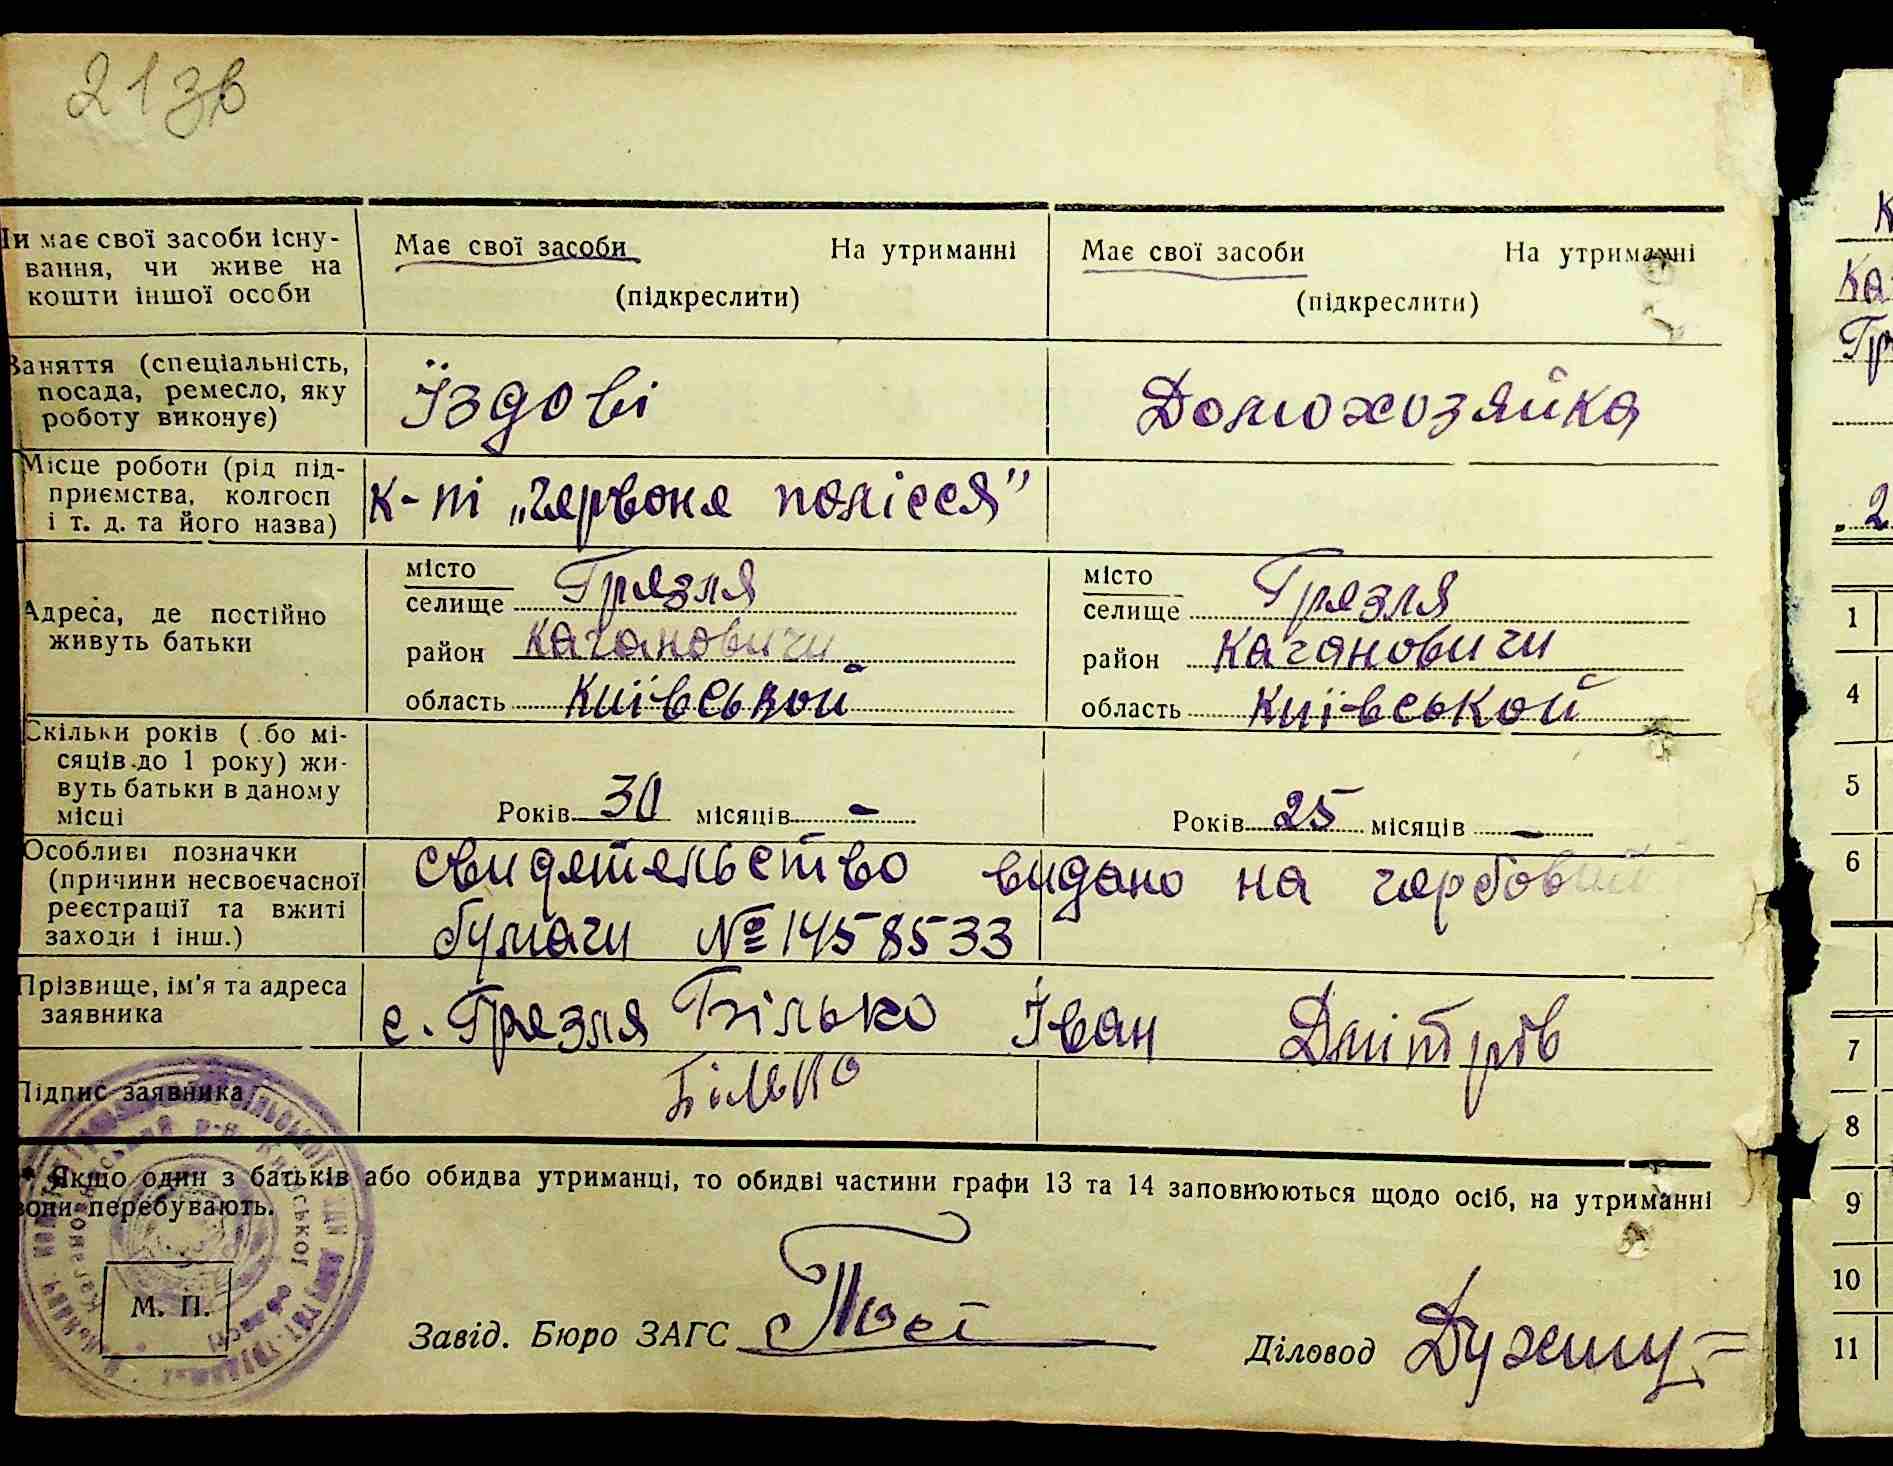 213в
Чи має свої засоби існу-
вання, чи живе на
кошти іншої особи
Має свої засоби На утриманні
(підкреслити)
Має свої засоби На утриманні
(підкреслити)
Заняття (спеціальність,
посада, ремесло, яку
роботу виконує)
Їздові
Домохозяйка
Місце роботи (рід під-
приємства, колгосп
і т. д. та його назва)
к-пі „червоне полісся"
Адреса, де постійно
живуть батьки
місто
селище Грязля
район Кагановичи
область Київськой
місто
селище Грезля
район Кагановичи
область Київськой
Скільки років (або мі-
сяців до 1 року) жи-
вуть батьки в даному
місці
Років 30 місяців -
Років 25 місяців -
Особливі позначки
(причини несвоєчасної
реєстрації та вжиті
заходи і інш.)
свидетельство видано на гербовий
бумаги № 1458533
Прізвище, ім'я та адреса
заявника
с. Грезля Білько Іван Дмітрів
Підпис заявника
Білько
* Якщо один з батьків або обидва утриманці, то обидві частини графи 13 та 14 заповнюються щодо осіб, на утриманні
вони перебувають.
М. П.
Завід. Бюро ЗАГС
Діловод
К
Ка
Гр
2
1
4
5
6
7
8
9
10
11